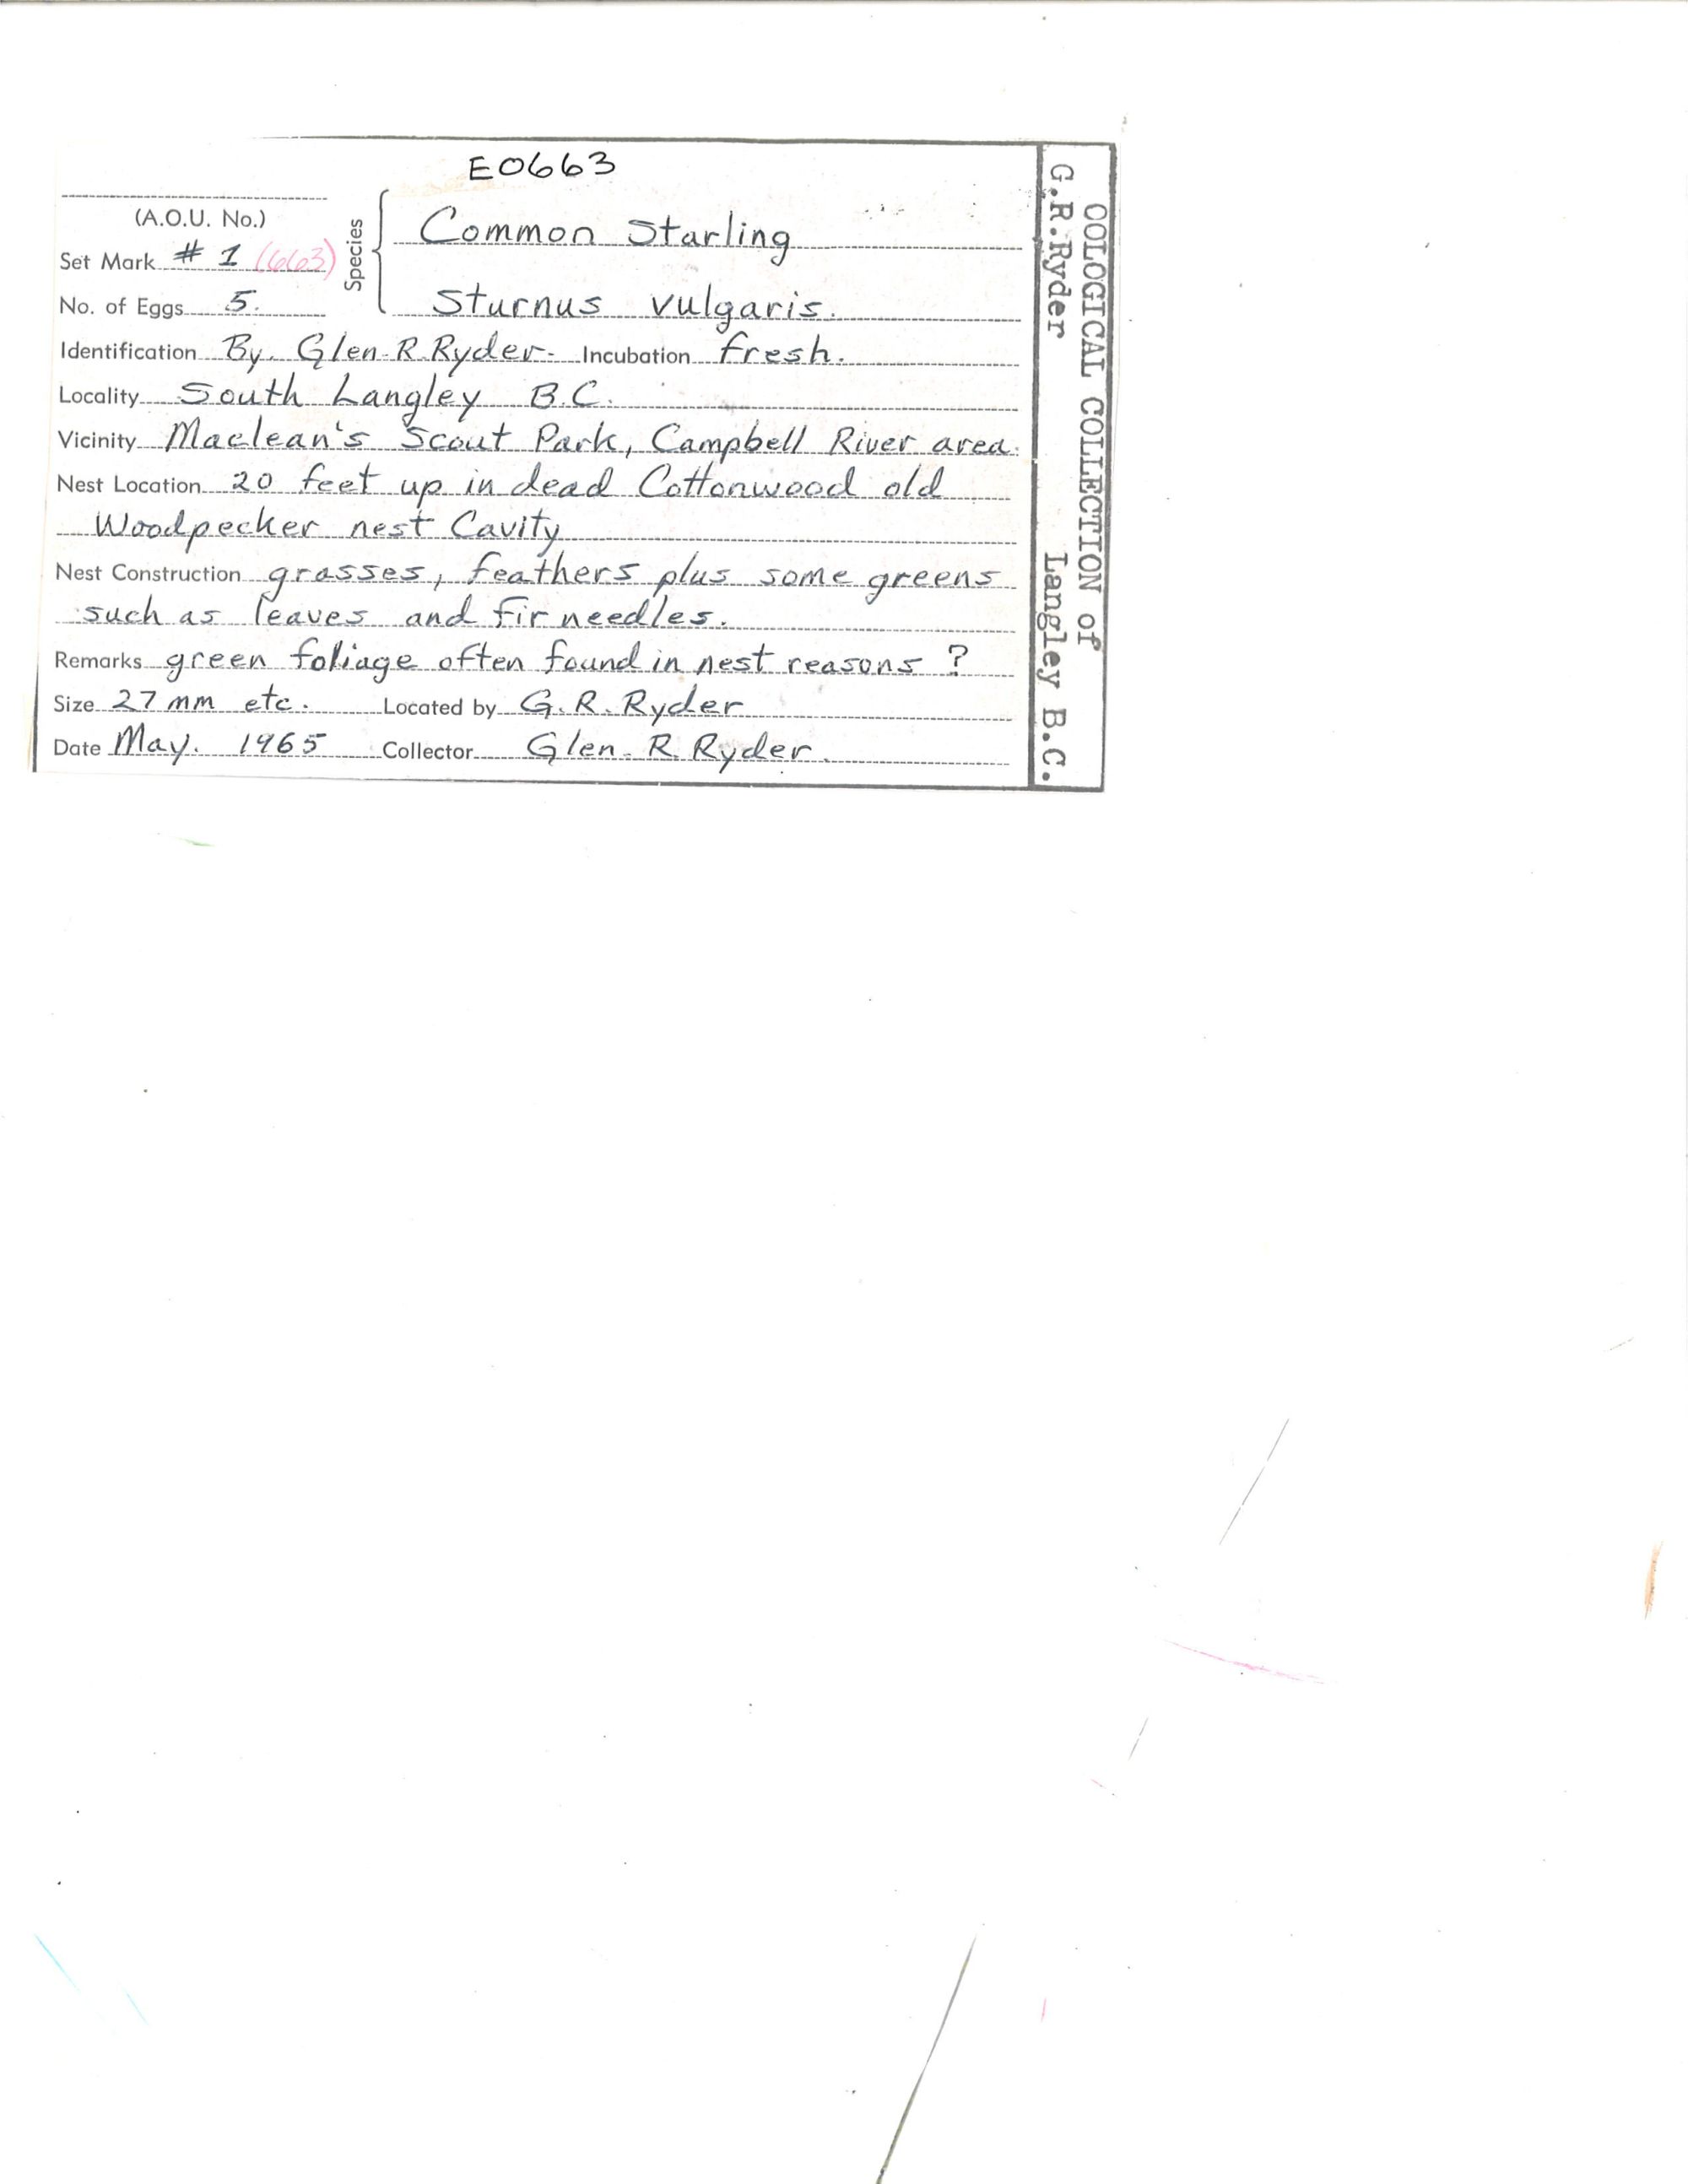 E0663
(A.O.U. No.)
Set Mark # 1 (663)
No. of Eggs 5.
Species
Common Starling
Sturnus vulgaris.
Identification By. Glen R. Ryder. Incubation fresh.
Locality South Langley B.C.
Vicinity Maclean's Scout Park, Campbell River area.
Nest Location 20 feet up in dead Cottonwood old
Woodpecker nest Cavity
Nest Construction grasses, feathers plus some greens
such as leaves and fir needles.
Remarks green foliage often found in nest reasons ?
Size 27 mm etc. Located by G. R. Ryder
Date May. 1965 Collector Glen R. Ryder.
OOLOGICAL COLLECTION of
G.R.Ryder Langley B.C.